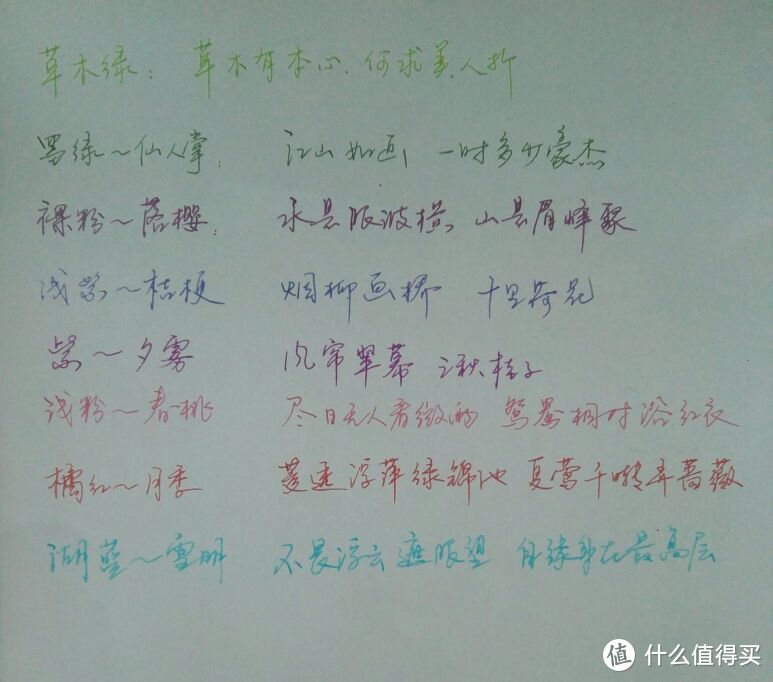 草木绿：草木有本心，何求美人折
墨绿～仙人掌： 江山如画 一时多少豪杰
裸粉～落樱： 水是眼波横 山是眉峰聚
浅紫～桔梗 烟柳画桥 十里荷花
紫～夕雾 风帘翠幕 三秋桂子
浅粉～春桃 尽日无人看微雨 鸳鸯相对浴红衣
橘红～月季 菱透浮萍绿锦池 夏莺千啭弄蔷薇
湖蓝～雪明 不畏浮云遮眼望 自缘身在最高层
值 什么值得买